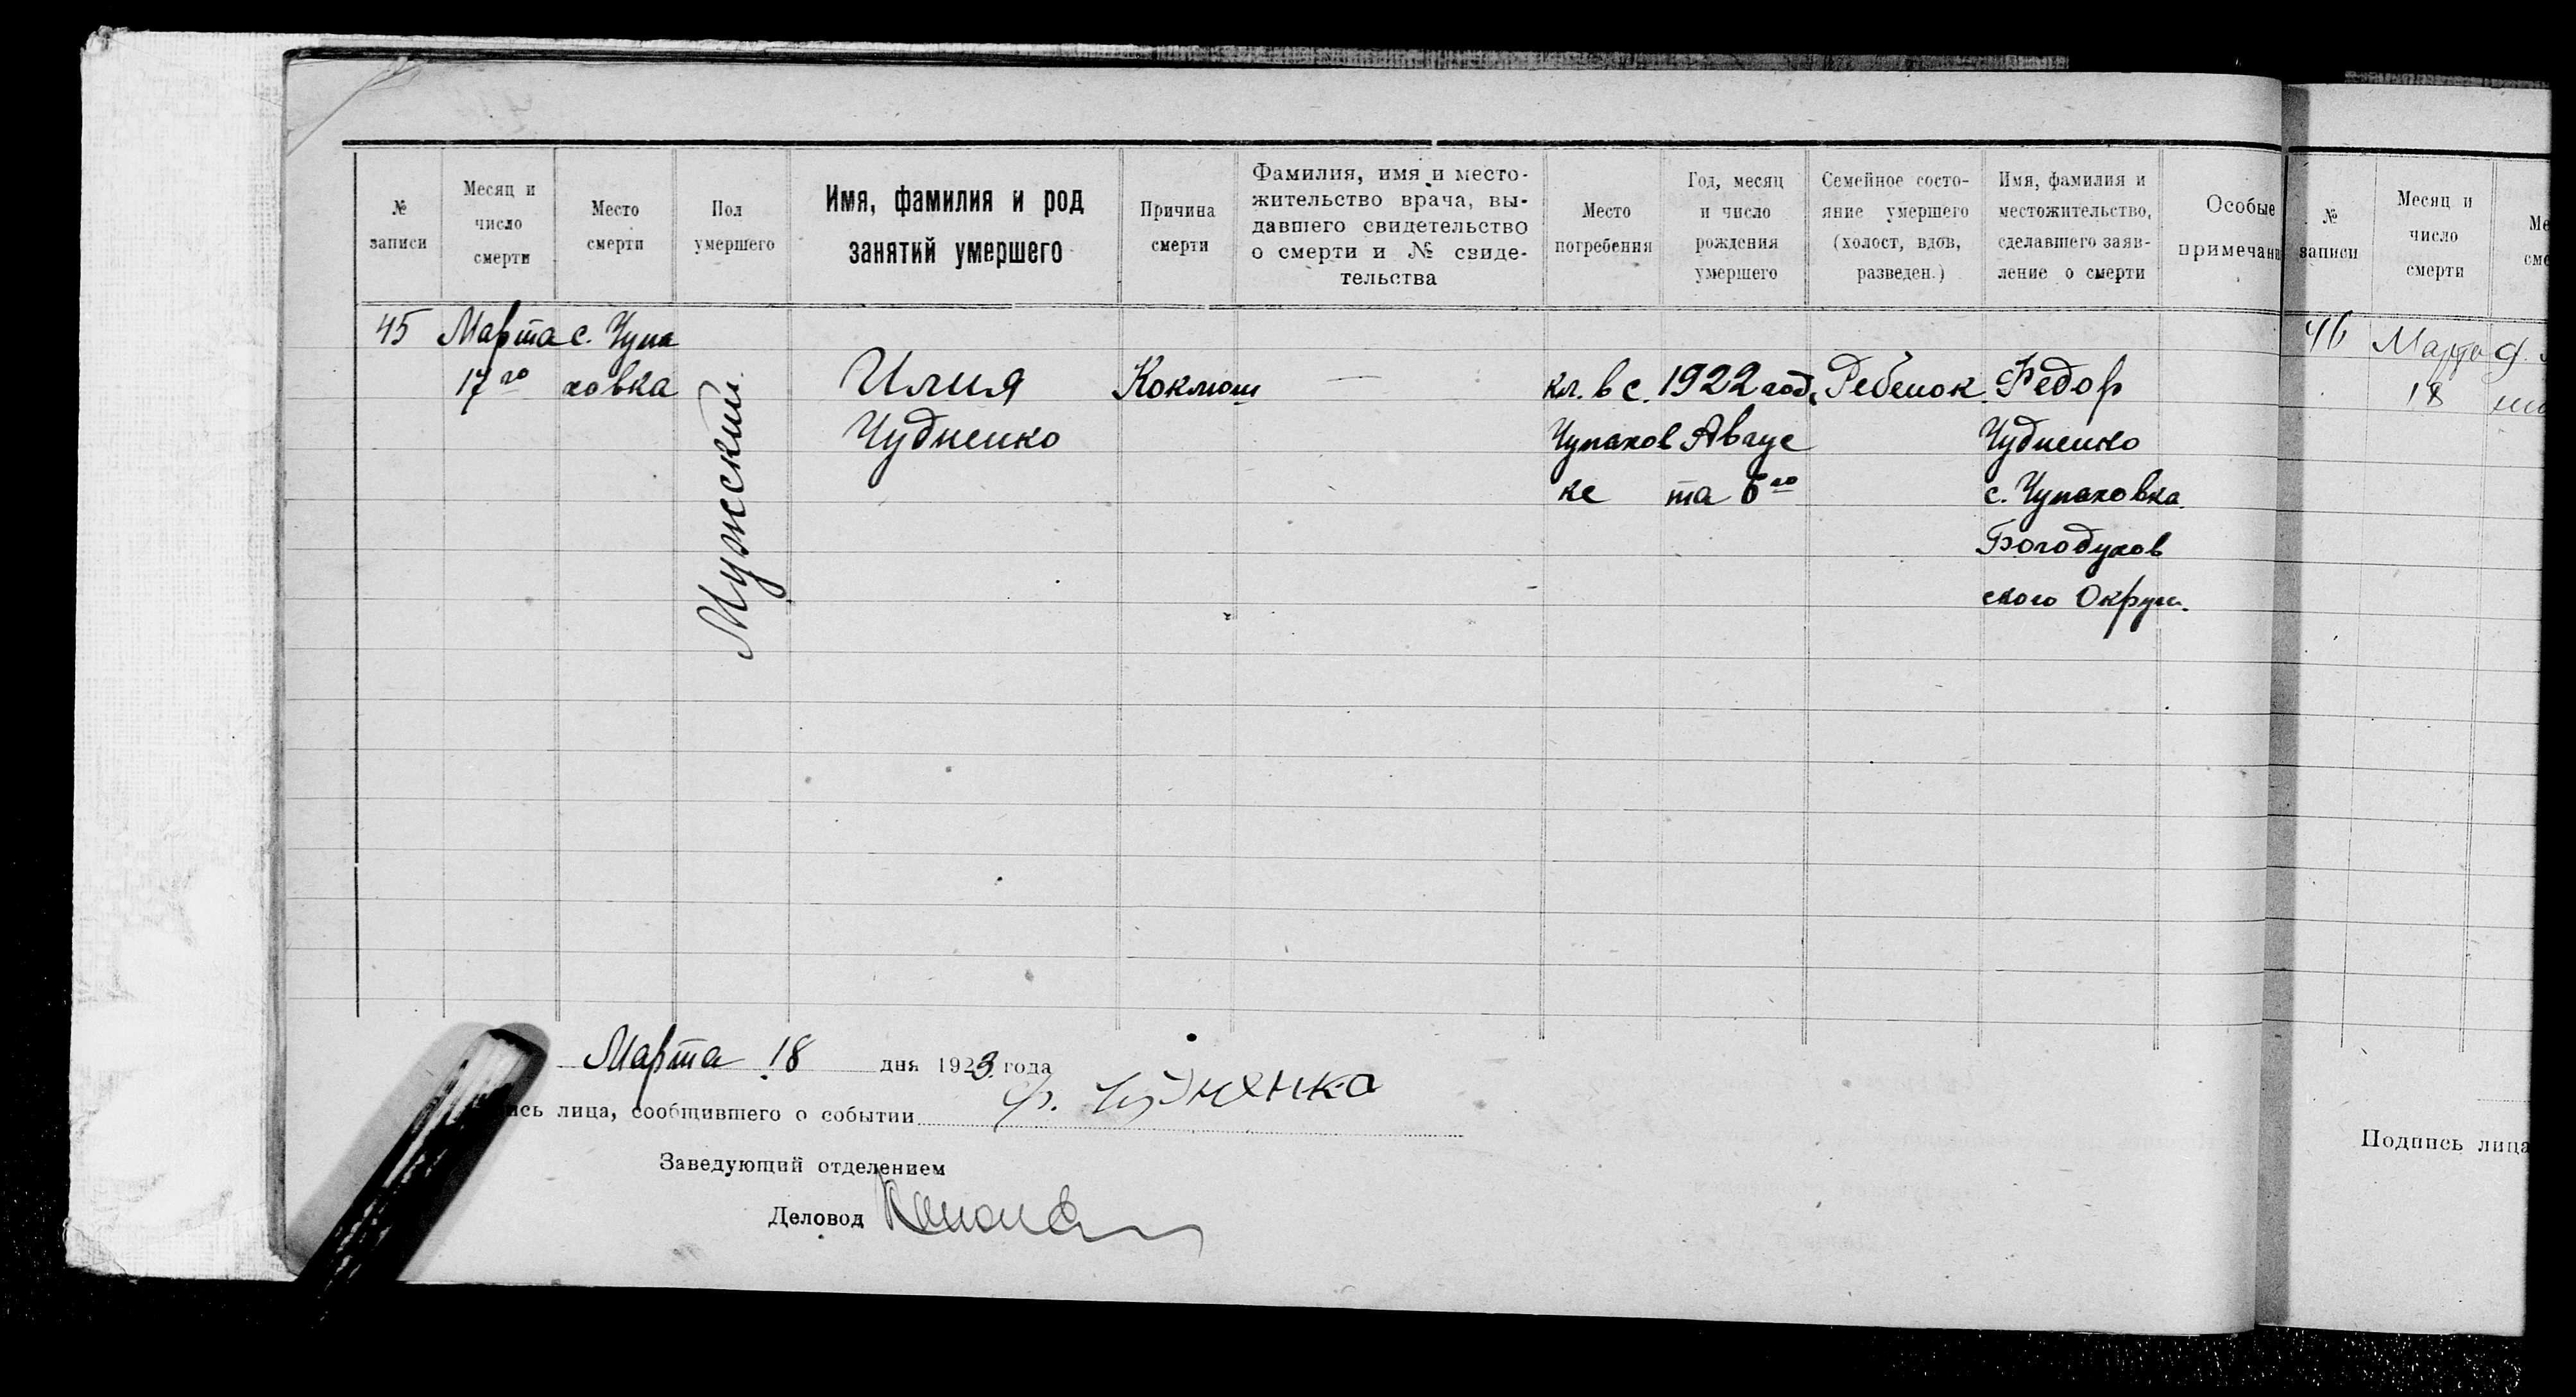 № записи
Месяц и число смерти
Место смерти
Пол умершего
Имя, фамилия и род занятий умершего
Причина смерти
Фамилия, имя и место-
жительство врача, вы-
давшего свидетельство
о смерти и № свиде-
тельства
Место погребения
Год, месяц и число рождения умершего
Семейное состо-
яние умершего
(холост, вдов,
разведен.)
Имя, фамилия и
местожительство,
сделавшего заяв-
ление о смерти
Особые
примечани
45
Марта
17го
с. Чупа
ховка
Мужский
Илия
Чудненко
Коклюш
—
кл. в с.
Чупахов
ке
1922 год,
Авгус
та 6го
Ребенок
Федор
Чудненко
с. Чупаховка
Богодухов
ского Округ.
Марта 18 дня 1923 года
ись лица, сообщившего о событии
Заведующий отделением
Деловод
№ записи
Месяц и число смерти
Ме
сме
46
Марта
18
Подпись лица